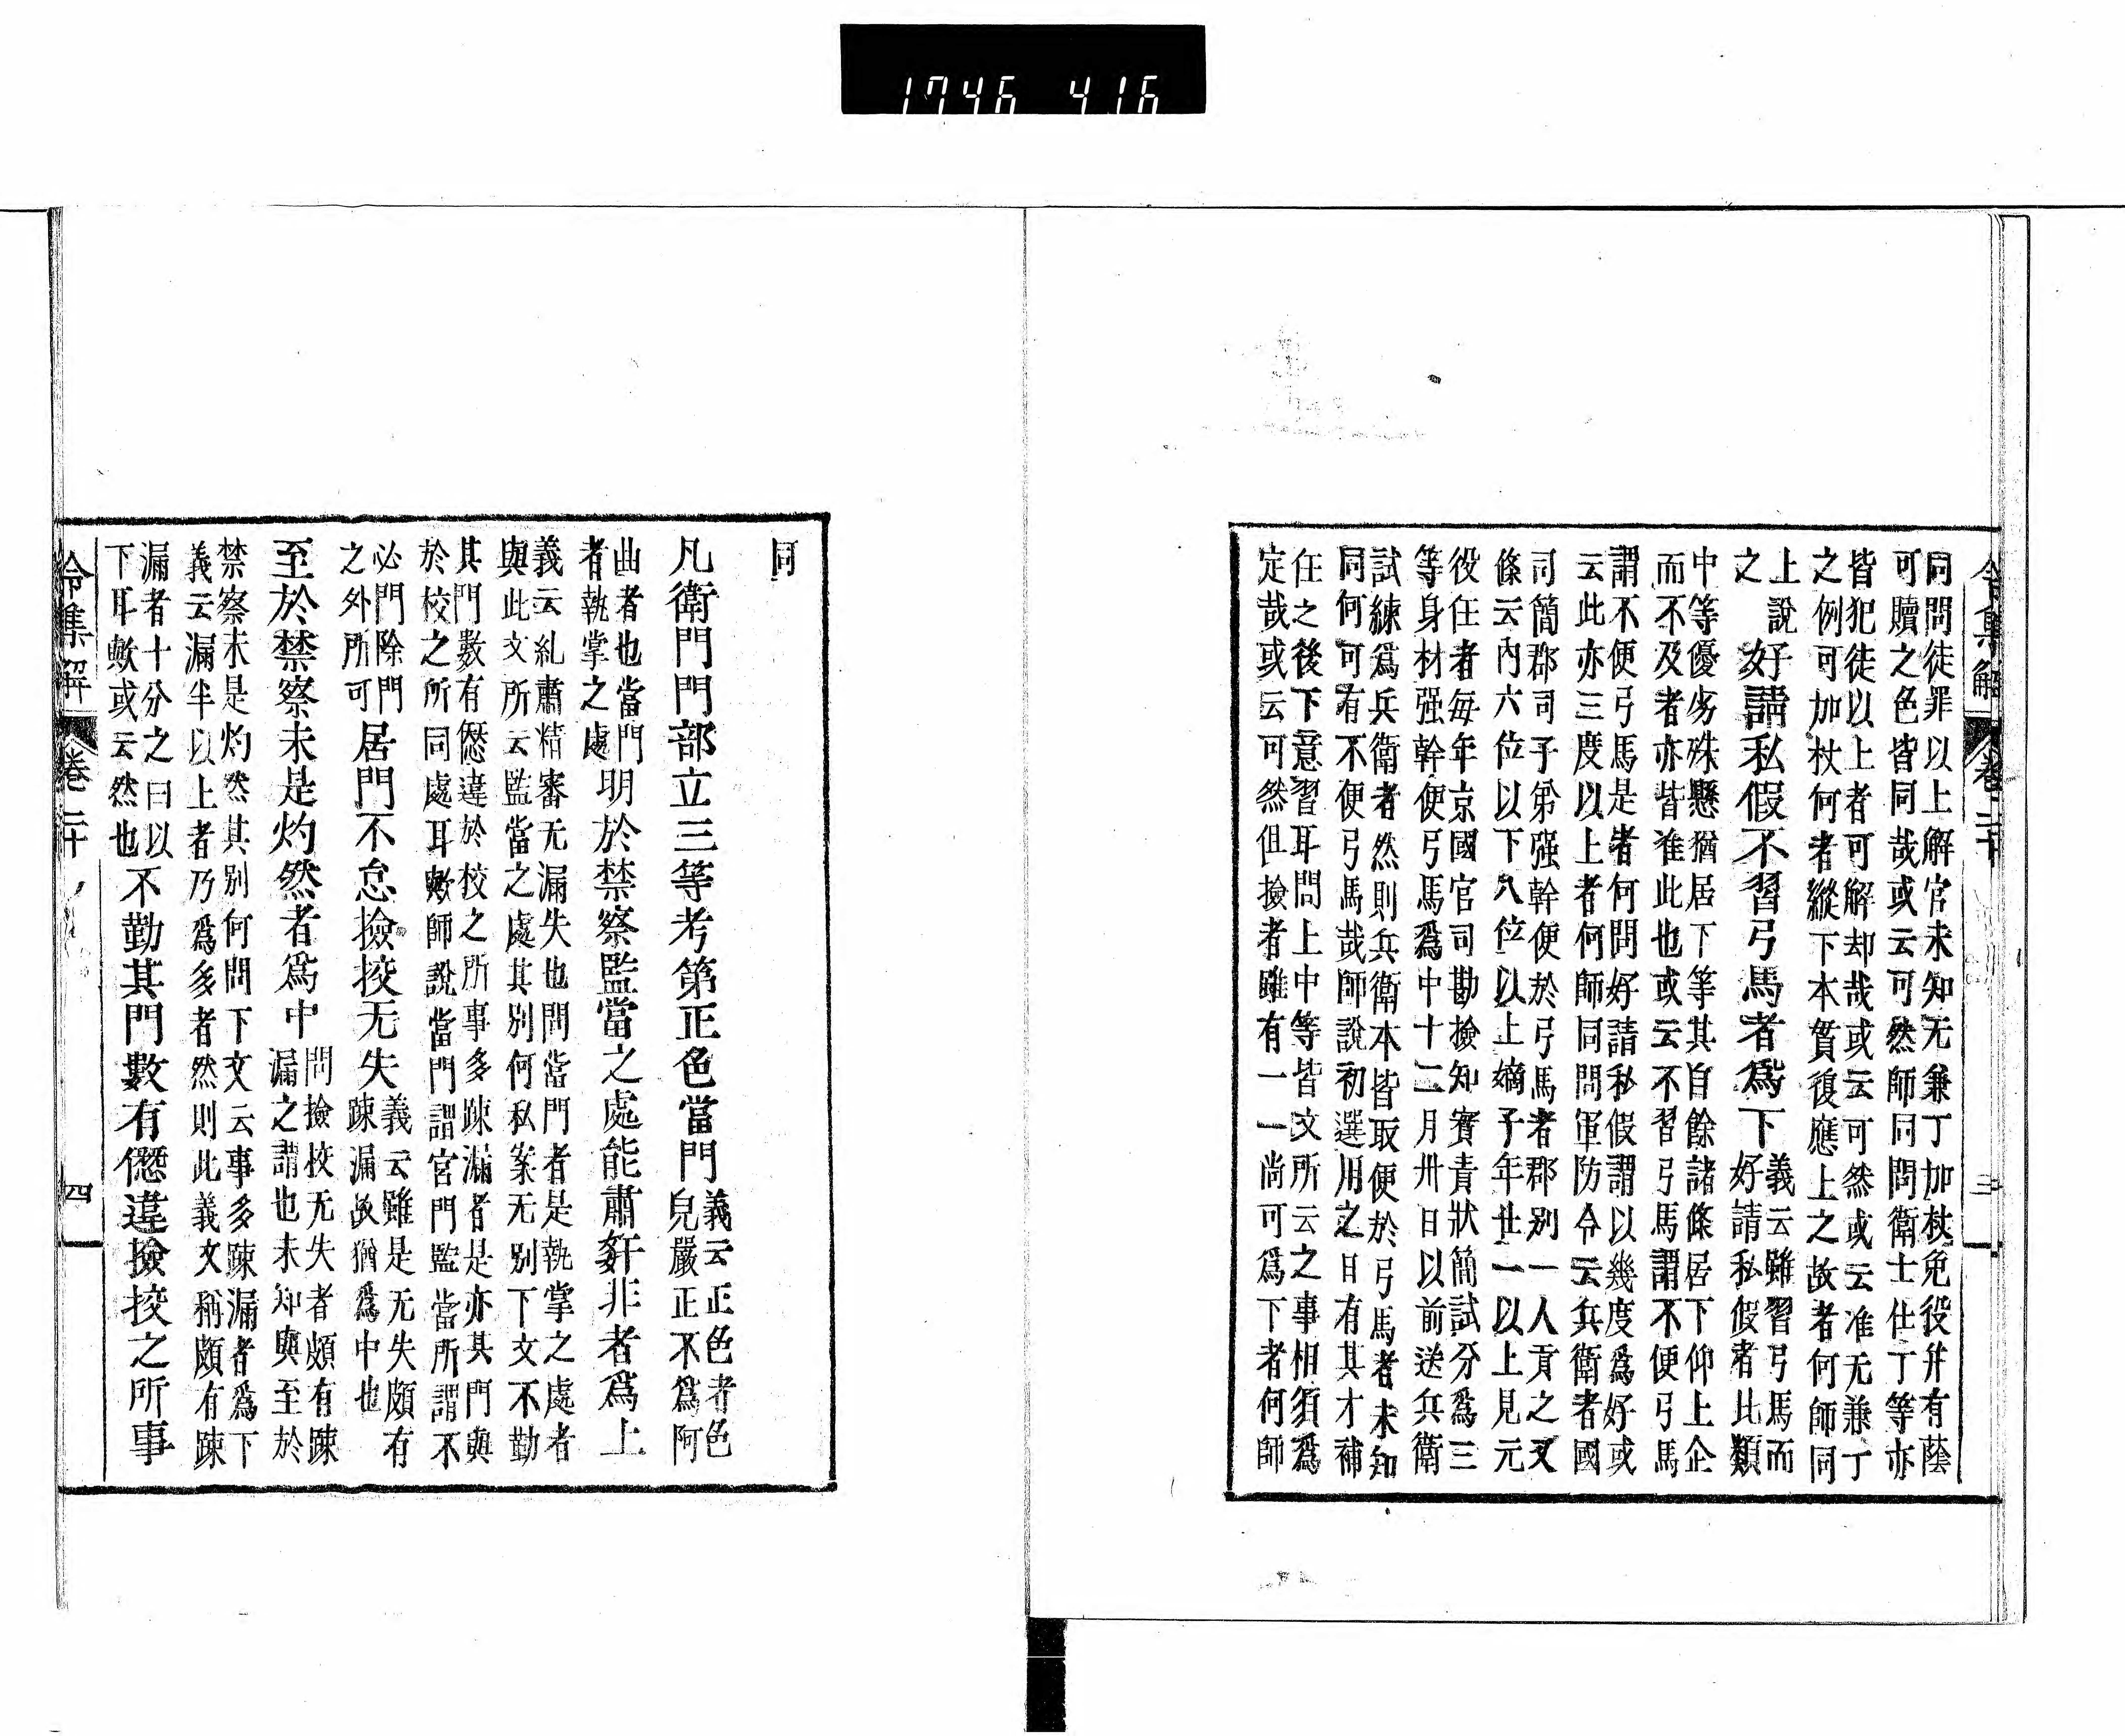 1746 416
同問徒罪以上解官未知无兼丁加杖免役并有蔭
可贖之色皆同哉或云可然師同問衛士仕丁等亦
皆犯徒以上者可解却哉或云可然或云准无兼丁
之例可加杖何者縱下本貫復應上之故者何師同
上說
之
好請私假不習弓馬者爲下
義云雖習弓馬而
好請私假者比類
中等優劣殊懸猶居下等其自餘諸條居下仰上企
而不及者亦皆准此也或云不習弓馬謂不便弓馬
謂不便弓馬是者何問好請私假謂以幾度爲好或
云此亦三度以上者何師同問軍防令云兵衛者國
司簡郡司子弟强幹便於弓馬者郡別一人貢之又
條云內六位以下八位以上嫡子年廿一以上見元
役任者每年京國官司勘撿知實責狀簡試分爲三
等身材强幹便弓馬爲中十二月卅日以前送兵衛
試練爲兵衛者然則兵衛本皆取便於弓馬者未知
同何可有不便弓馬哉師說初選用之日有其才補
任之後下意習耳問上中等皆文所云之事相須爲
定哉或云可然但撿者雖有一一尚可爲下者何師
令集解 卷二十 三
同
凡衛門門部立三等考第正色當門
義云正色者色
皃嚴正不爲阿
曲者也當門
者執掌之處
明於禁察監當之處能肅姧非者爲上
義云糺肅精審无漏失也問當門者是執掌之處者
與此文所云監當之處其別何私案无別下文不勤
其門數有僽違於校之所事多踈漏者是亦其門與
於校之所同處耳歟師說當門謂宮門監當所謂不
必門除門
之外所可
居門不怠撿挍无失
義云雖是无失頗有
踈漏故猶爲中也
至於禁察未是灼然者爲中
問撿校无失者頗有踈
漏之謂也未知與至於
禁察未是灼然其別何問下文云事多踈漏者爲下
義云漏半以上者乃爲多者然則此義文稱頗有踈
漏者十分之曰以
下耳歟或云然也
不勤其門數有僽違撿挍之所事
令集解 卷二十 四